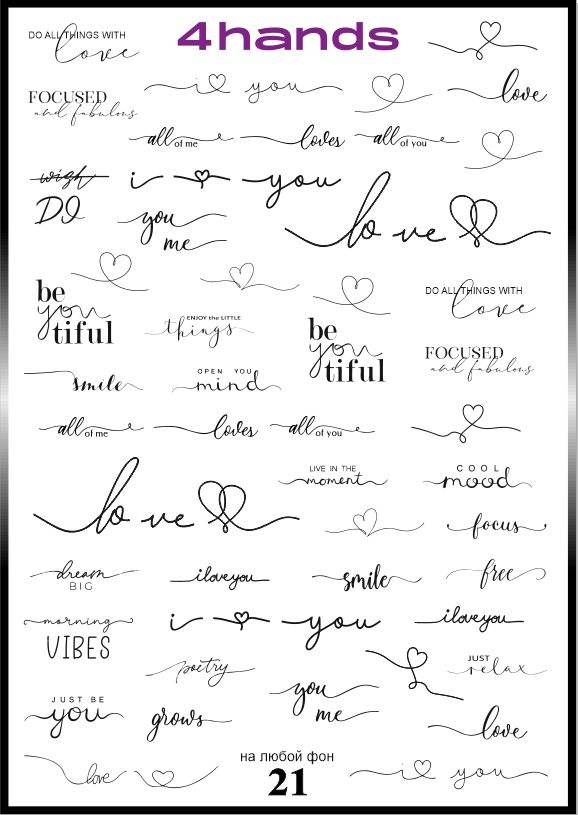 4hands
DO ALL THINGS WITH
love
i you
love
FOCUSED
and fabulous
all of me
loves
all of you
wish
DO
i you
you
me
love
be
you
tiful
ENJOY the LITTLE
things
be
you
tiful
DO ALL THINGS WITH
love
FOCUSED
and fabulous
smile
OPEN YOU
mind
all of me
loves
all of you
LIVE IN THE
moment
COOL
mood
love
focus
dream
BIG
iloveyou
smile
free
morning
VIBES
i you
iloveyou
poetry
JUST
relax
JUST BE
you
grows
you
me
love
love
на любой фон
21
i you